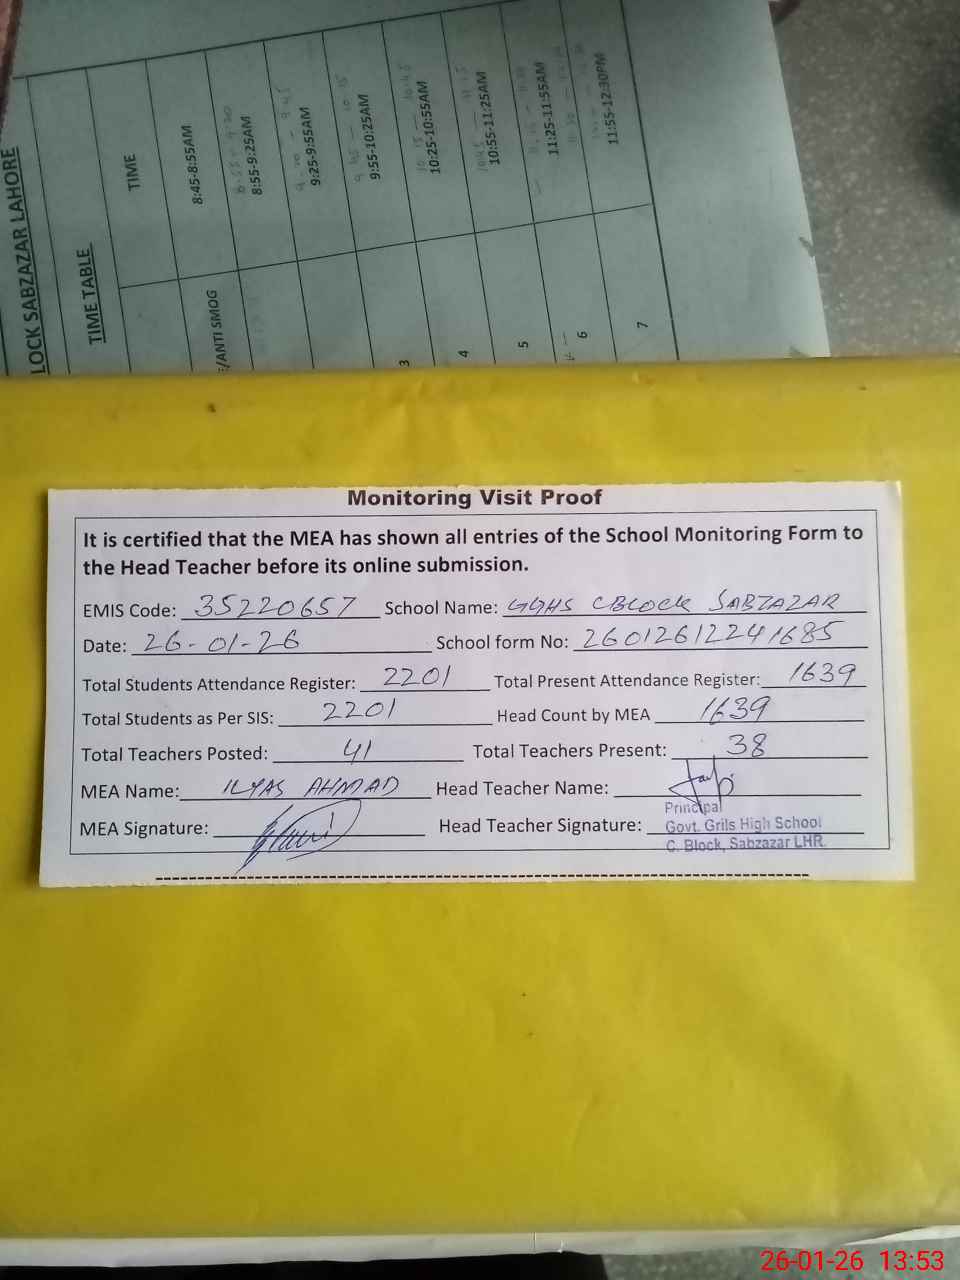 LOCK SABZAZAR LAHORE
TIME TABLE
TIME
/ANTI SMOG 8:45-8:55AM
8:55-9:25AM
9:25-9:55AM
9:55-10:25AM
3 10:25-10:55AM
4 10:55-11:25AM
5 11:25-11:55AM
6
7 11:55-12:30PM
Monitoring Visit Proof
It is certified that the MEA has shown all entries of the School Monitoring Form to
the Head Teacher before its online submission.
EMIS Code: 35220657 School Name: GGHS CBLOCK SABZAZAR
Date: 26-01-26 School form No: 26012612241685
Total Students Attendance Register: 2201 Total Present Attendance Register: 1639
Total Students as Per SIS: 2201 Head Count by MEA 1639
Total Teachers Posted: 41 Total Teachers Present: 38
MEA Name: ILYAS AHMAD Head Teacher Name:
MEA Signature: Head Teacher Signature:
Principal
Govt. Grils High School
C. Block, Sabzazar LHR.
26-01-26 13:53